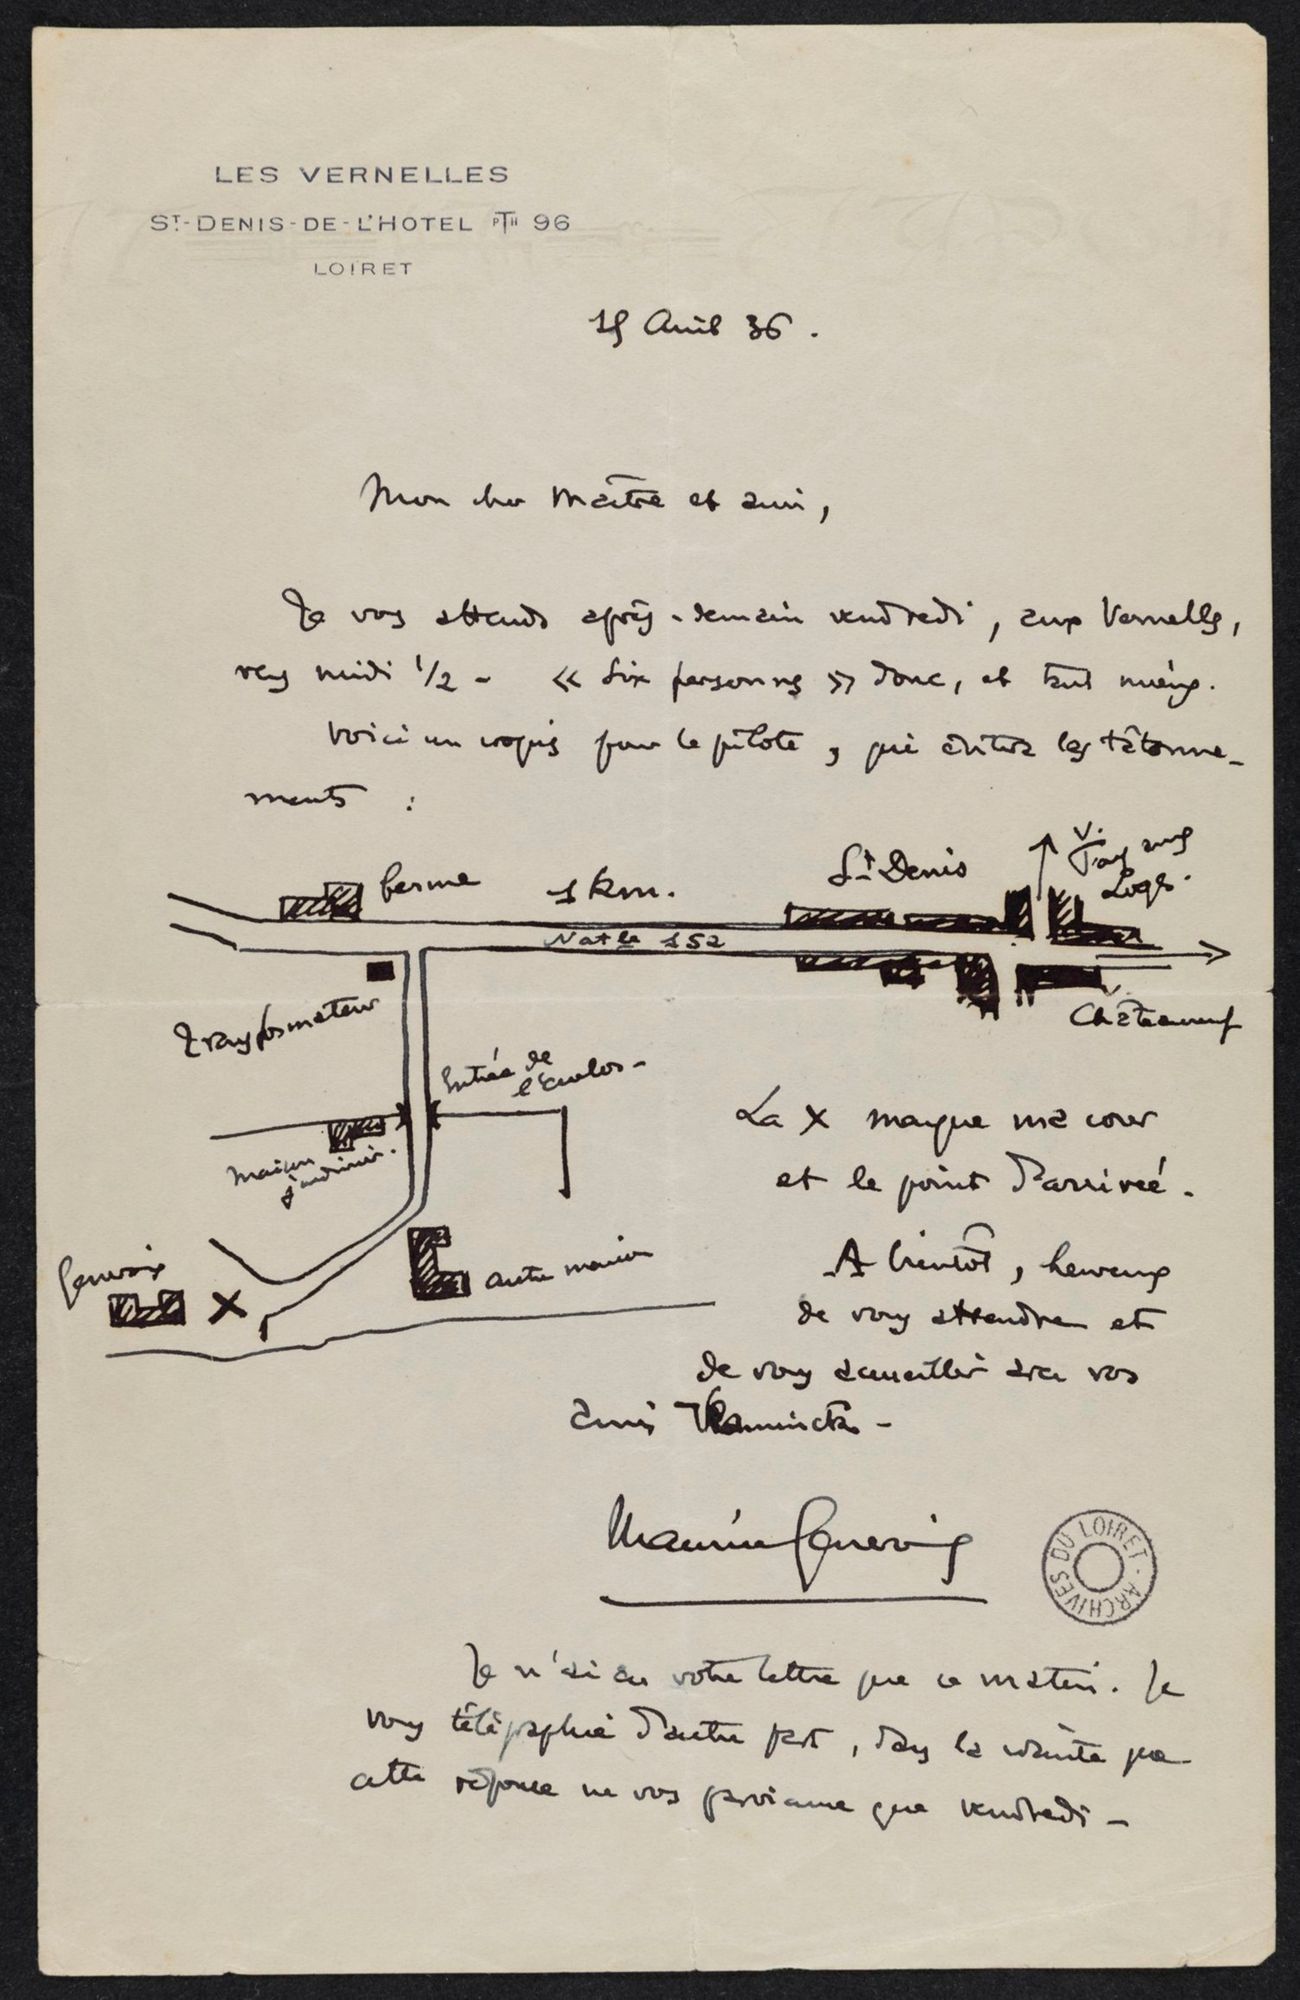 LES VERNELLES
ST-DENIS-DE-L'HOTEL PTH 96
LOIRET
15 Avril 36.
Mon cher Maître et ami,
Je vous attends après-demain vendredi, aux Vernelles,
vers midi 1/2 - « Six personnes » donc, et tant mieux.
Voici un croquis pour le pilote, qui évitera les tâtonne-
ments :
ferme
1 km.
St Denis
V.
Fay aux
Loges.
Natle 152
Châteauneuf
transformateur
Entrée de
l'enclos -
La X marque ma cour
et le point d'arrivée.
maison
jardinier.
Genevoix
X
autre maison
A bientôt, heureux
de vous attendre et
de vous accueillir avec vos
amis Vlaminck -
Maurice Genevoix
ARCHIVES DU LOIRET
Je n'ai eu votre lettre que ce matin. Je
vous télégraphie d'autre part, dans la crainte que
cette réponse ne vous parvienne que vendredi -